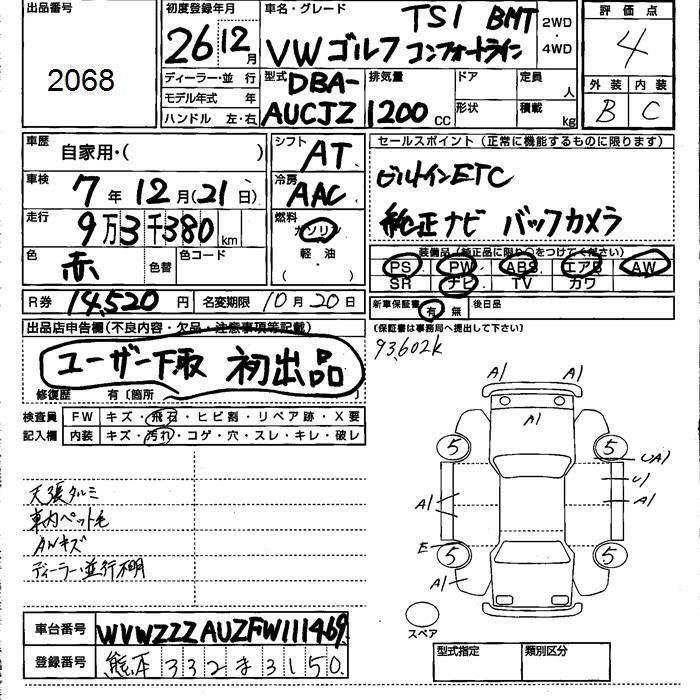 出品番号
2068
初度登録年月
26年12月
車名・グレード
TSI BMT
VW ゴルフ コンフォートライン
2WD
・
4WD
評価点
4
外装 内装
B C
ディーラー・並行
モデル年式 年
ハンドル 左・右
型式
DBA-
AUCJZ
排気量
1200 CC
ドア
形状
定員 人
積載 kg
車歴
自家用・( )
車検
7年12月(21日)
走行
9万3千380km
色
赤
色替
色コード
シフト
AT
冷房
AAC
燃料
ガソリン
軽・油
( )
セールスポイント(正常に機能するものに限ります)
ビルトインETC
純正ナビ バックカメラ
装備品(純正品に限り○をつけてください)
PS PW ABS エアB AW
SR ナビ TV カワ
R券 14,520円 名変期限 10月20日
新車保証書 有 無 後日品
(保証書は事務局へ提出して下さい)
93,602k
出品店申告欄(不良内容・欠品・注意事項等記載)
ユーザー下取 初出品
修復歴 有〔箇所
検査員 FW キズ・飛石・ヒビ割・リペア跡・X要
記入欄 内装 キズ・汚れ・コゲ・穴・スレ・キレ・破レ
天張タルミ
車内ペット毛
AWキズ
ディーラー・並行不明
A1 A1
A1
5 5
UA1
U1
A1 A1
E
5 5
A1
スペア
車台番号 WVWZZZAUZFW111469
登録番号 熊本332ま3150
型式指定 類別区分